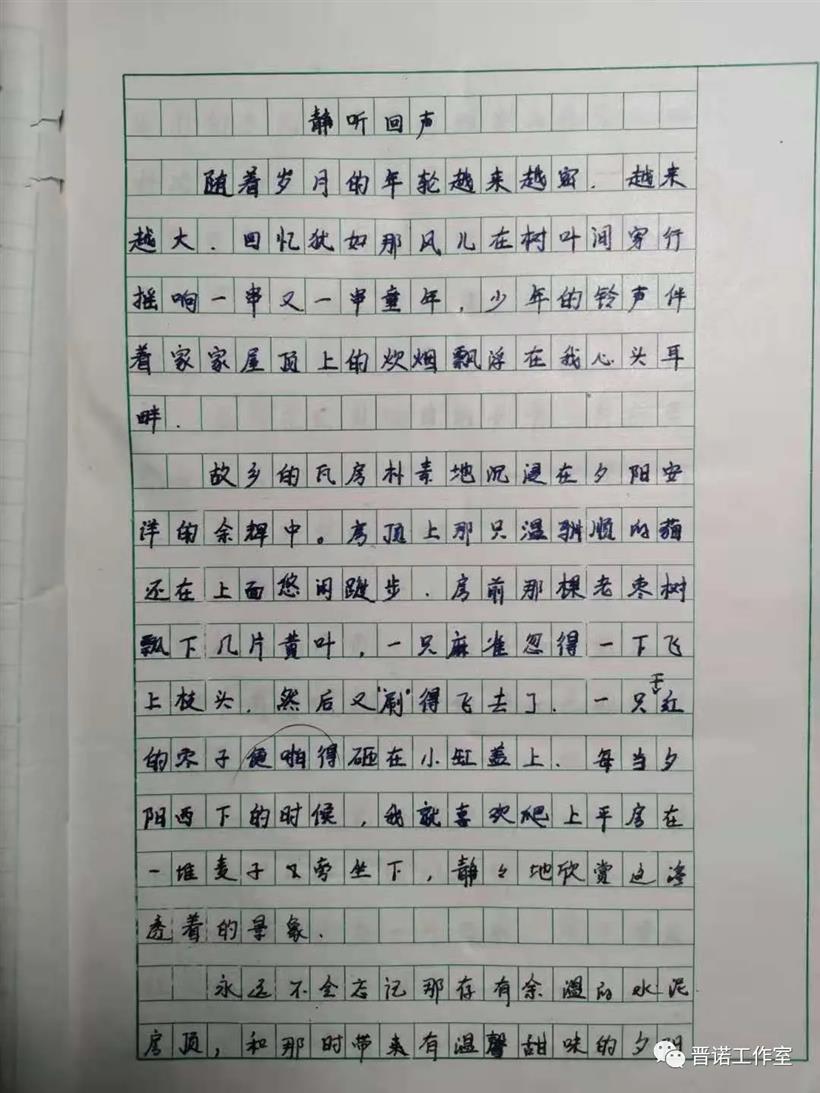 静听回声
随着岁月的年轮越来越密．越来
越大．回忆犹如那风儿在树叶间穿行
摇响一串又一串童年，少年的铃声伴
着家家屋顶上的炊烟飘浮在我心头耳
畔．
故乡的瓦房朴素地沉浸在夕阳安
洋的余辉中。房顶上那只温驯顺的猫
还在上面悠闲踱步．房前那棵老枣树
飘下几片黄叶，一只麻雀忽得一下飞
上枝头．然后又"刷"得飞去了．一只干红
的枣子便啪得砸在小缸盖上．每当夕
阳西下的时候，我就喜欢爬上平房在
一堆麦子旁坐下，静々地欣赏这渗
透着的景象．
永远不会忘记那存有余温的水泥
房顶，和那时带来有温馨甜味的夕阳
晋诺工作室